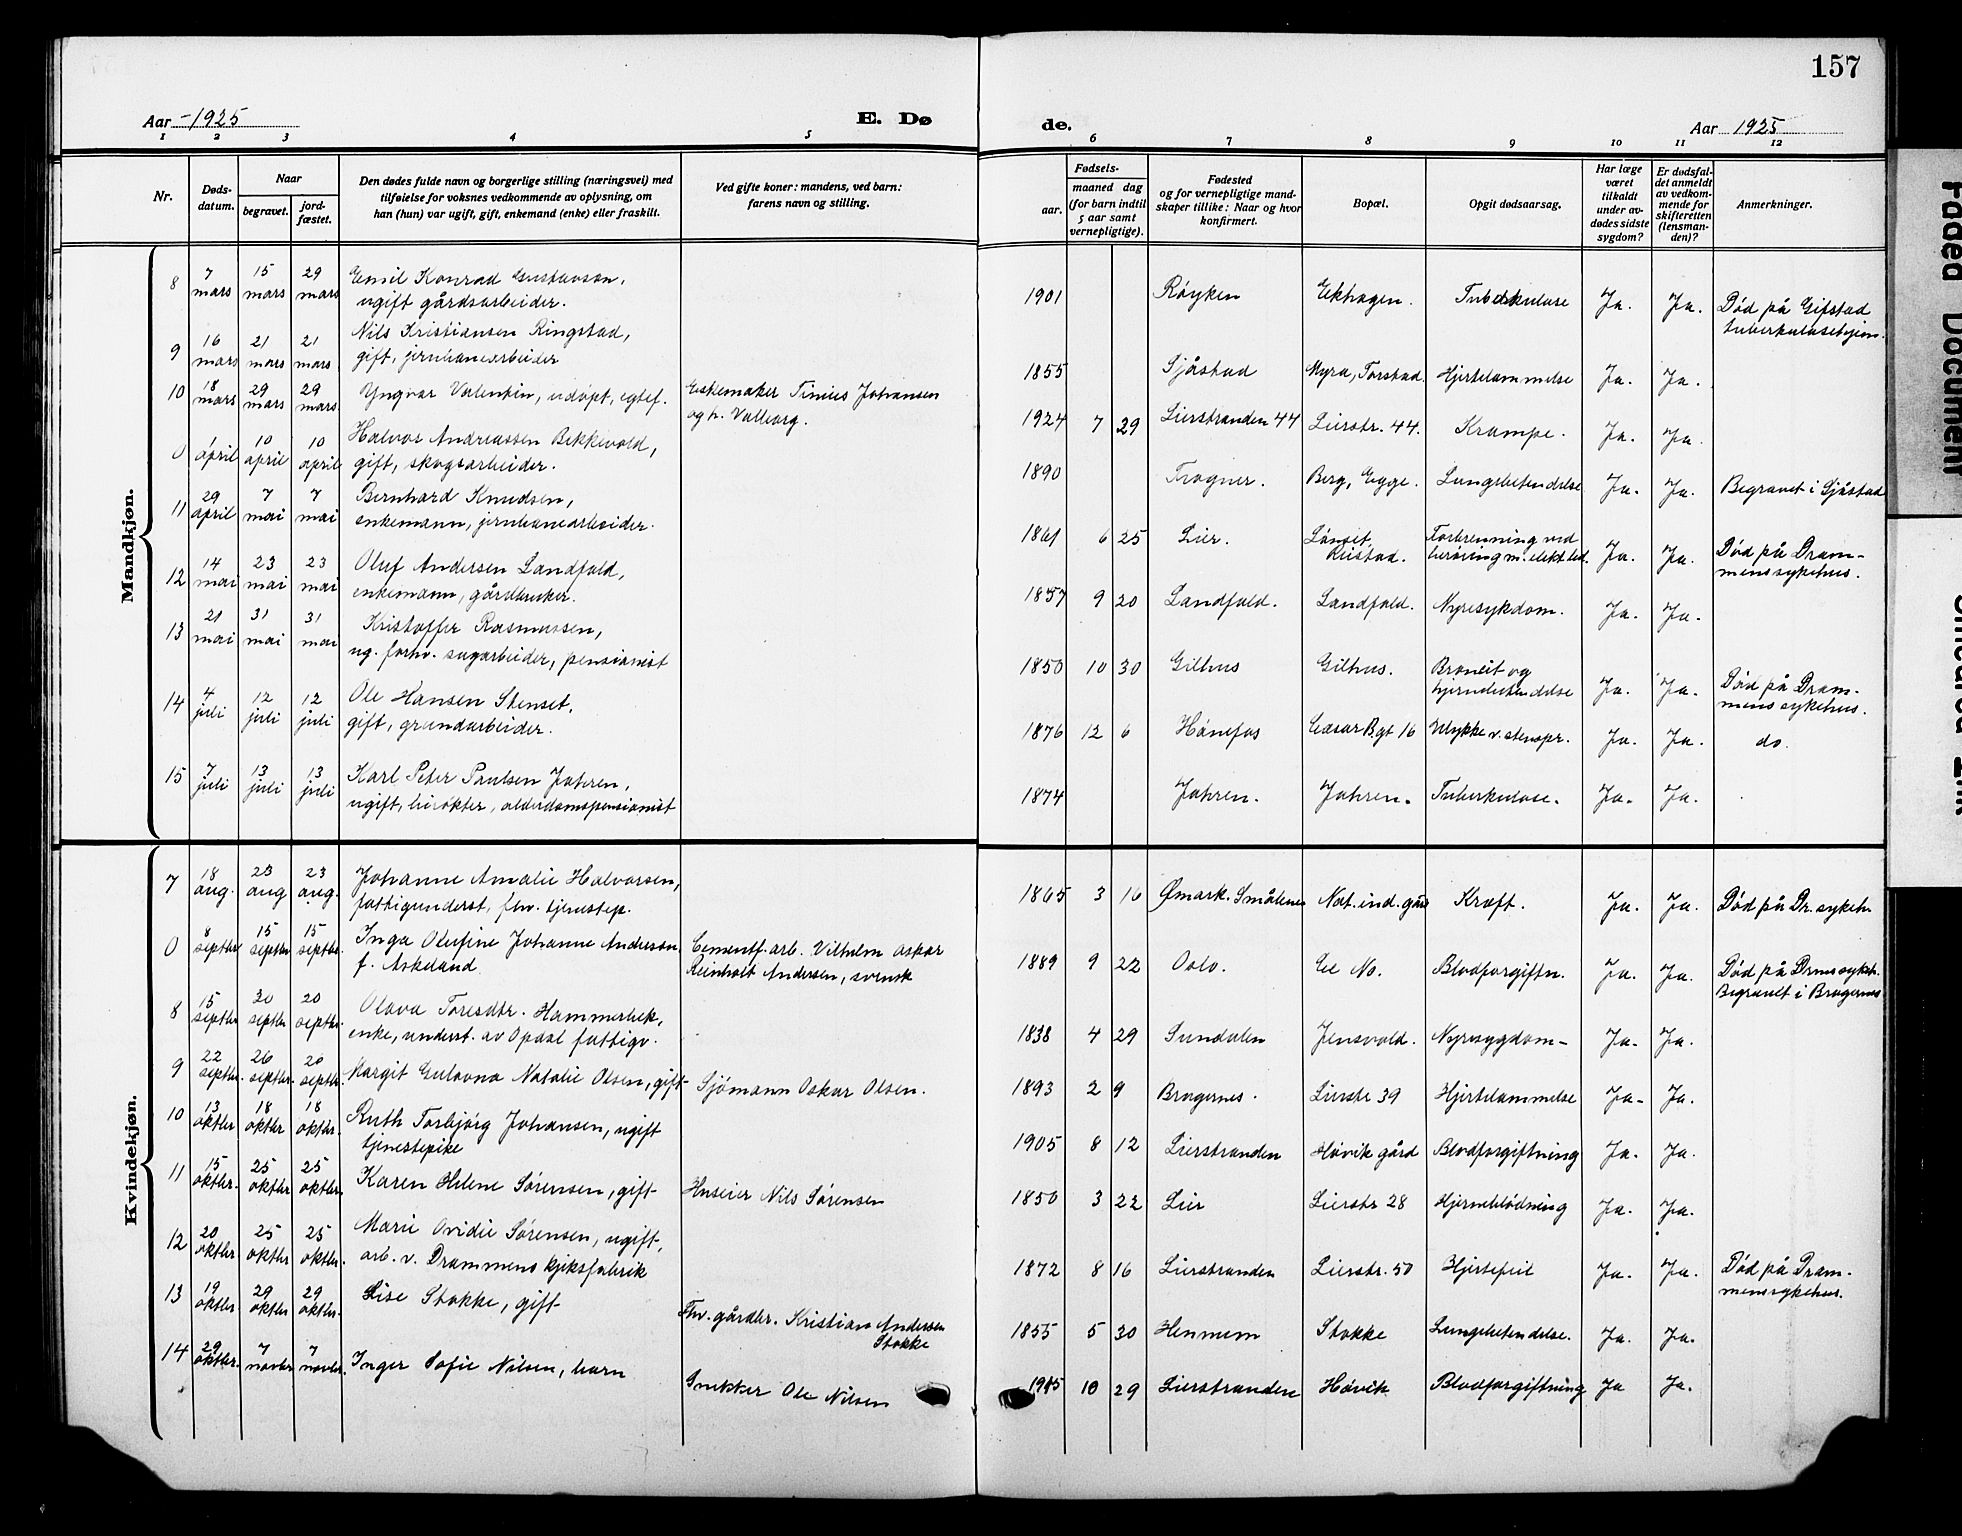 157
Aar -1925
E. Dø
de.
Aar 1925
1 2 3 4 5 6 7 8 9 10 11 12
Nr.
Døds-
datum.
Naar
begravet.
jord-
fæstet.
Den dødes fulde navn og borgerlige stilling (næringsvei) med
tilføielse for voksnes vedkommende av oplysning, om
han (hun) var ugift, gift, enkemand (enke) eller fraskilt.
Ved gifte koner: mandens, ved barn:
farens navn og stilling.
Fødsels-
aar.
maaned dag
(for barn indtil
5 aar samt
vernepligtige).
Fødested
og for vernepligtige mand-
skaper tillike: Naar og hvor
konfirmert.
Bopæl.
Opgit dødsaarsag.
Har læge
været
tilkaldt
under av-
dødes sidste
sygdom?
Er dødsfal-
det anmeldt
av vedkom-
mende for
skifteretten
(lensman-
den)?
Anmerkninger.
Mandkjøn.
8 7 mars 15 mars 29 mars Emil Konrad Gustavson,
ugift gårdsarbeider.
1901 Røyken Ekhagen. Tuberkulose Ja. Ja. Død på Gifstad
tuberkulosehjem.
9 16 mars 21 mars 21 mars Nils Kristiansen Ringstad,
gift, jernbanearbeider
1855 Sjåstad Myra, Torstad. Hjertelammelse Ja. Ja.
10 18 mars 29 mars 29 mars. Yngvar Valentin, udøpt, egtef. Eskemaker Tinius Johansen
og h. Valborg.
1924 7 29 Lierstranden 44 Lierstr. 44. Krampe. Ja. Ja.
0 1 april 10 april 10 april Halvor Andreassen Bekkevold,
gift, skogsarbeider.
1890 Frogner. Berg, Egge. Lungebetendelse Ja. Ja. Begravet i Sjåstad
11 29 april 7 mai 7 mai Bernhard Knudsen,
enkemann, jernbanearbeider.
1861 6 25 Lier. Lønset,
Reistad. Forbrenning ved
berøring m. elekt. led. Ja. Ja. Død på Dram-
mens sykehus.
12 14 mai 23 mai 23 mai Oluf Andersen Landfald,
enkemann, gårdbruker.
1857 9 20 Landfald. Landfald. Nyresykdom. Ja. Ja.
13 21 mai 31 mai 31 mai Kristoffer Rasmussen,
ug. forhv. sagarbeider, pensionist
1850 10 30 Gilhus Gilhus. Bronkit og
hjernebetendelse Ja. Ja. Død på Dram-
mens sykehus.
14 4 juli 12 juli 12 juli Ole Hansen Stenset,
gift, grundarbeider.
1876 12 6 Hønefos Cæsar Bgt 16 Ulykke v. stenspr. Ja. Ja. do.
15 7 juli 13 juli 13 juli Karl Peter Paulsen Jahren,
ugift, birøkter, alderdomspensionist
1874 Jahren. Jahren. Tuberkulose. Ja. Ja.
Kvindekjøn.
7 18 aug. 23 aug 23 aug. Johanne Amalie Halvorsen,
fattigunderst, fhv. tjenestep.
1865 3 16 Ømark. Smålenene Nøt. ind. gård Kræft. Ja. Ja. Død på Dr. sykeh.
0 8 septbr 15 septbr 15 septbr. Inga Olufine Johanne Anderson
f. Askeland. Cementf. arb. Vilhelm Oskar
Reinholt Andersen, svensk
1889 9 22 Oslo. Blodforgiftn. Ja. Ja. Død på Drms sykeh.
Begravet i Bragernes
8 15 septbr 20 septbr 20 septbr. Olava Toresdtr. Hammerbek,
enke, underst. av Opdal fattigv.
1838 4 29 Sundalen Jensvold. Nyresygdom- Ja. Ja.
9 22 septbr. 26 septbr. 20 septbr. Margit Gulovna Natalie Olsen, gift Sjømann Oskar Olsen.
1893 2 9 Bragernes. Lierstr 39 Hjertelammelse Ja. Ja.
10 13 oktbr 18 oktbr 18 oktbr. Ruth Torbjørg Johansen, ugift
tjenestepike
1905 8 12 Lierstranden Høvik gård Blodforgiftning Ja. Ja.
11 15 oktbr. 25 oktbr 25 oktbr. Karen Helene Sørensen, gift Huseier Nils Sørensen
1850 3 22 Lier Lierstr 28 Hjerneblødning Ja. Ja.
12 20 oktbr 25 oktbr 25 oktbr. Marie Ovidie Sørensen, ugift,
arb. v. Drammens kjeksfabrik
1872 8 16 Lierstranden Lierstr. 50 Hjertefeil Ja. Ja. Død på Dram-
mens sykehus.
13 19 oktbr. 29 oktbr 29 oktbr. Lise Stokke, gift Fhv. gårdbr. Kristian Andersen
Stokke
1855 5 30 Hennum Stokke Lungebetendelse. Ja. Ja.
14 29 oktbr. 7 novbr 7 novbr. Inger Sofie Nilsen, barn Snekker Ole Nilsen
10 29 Lierstranden Høvik Blodforgiftning Ja Ja.
Faded Document